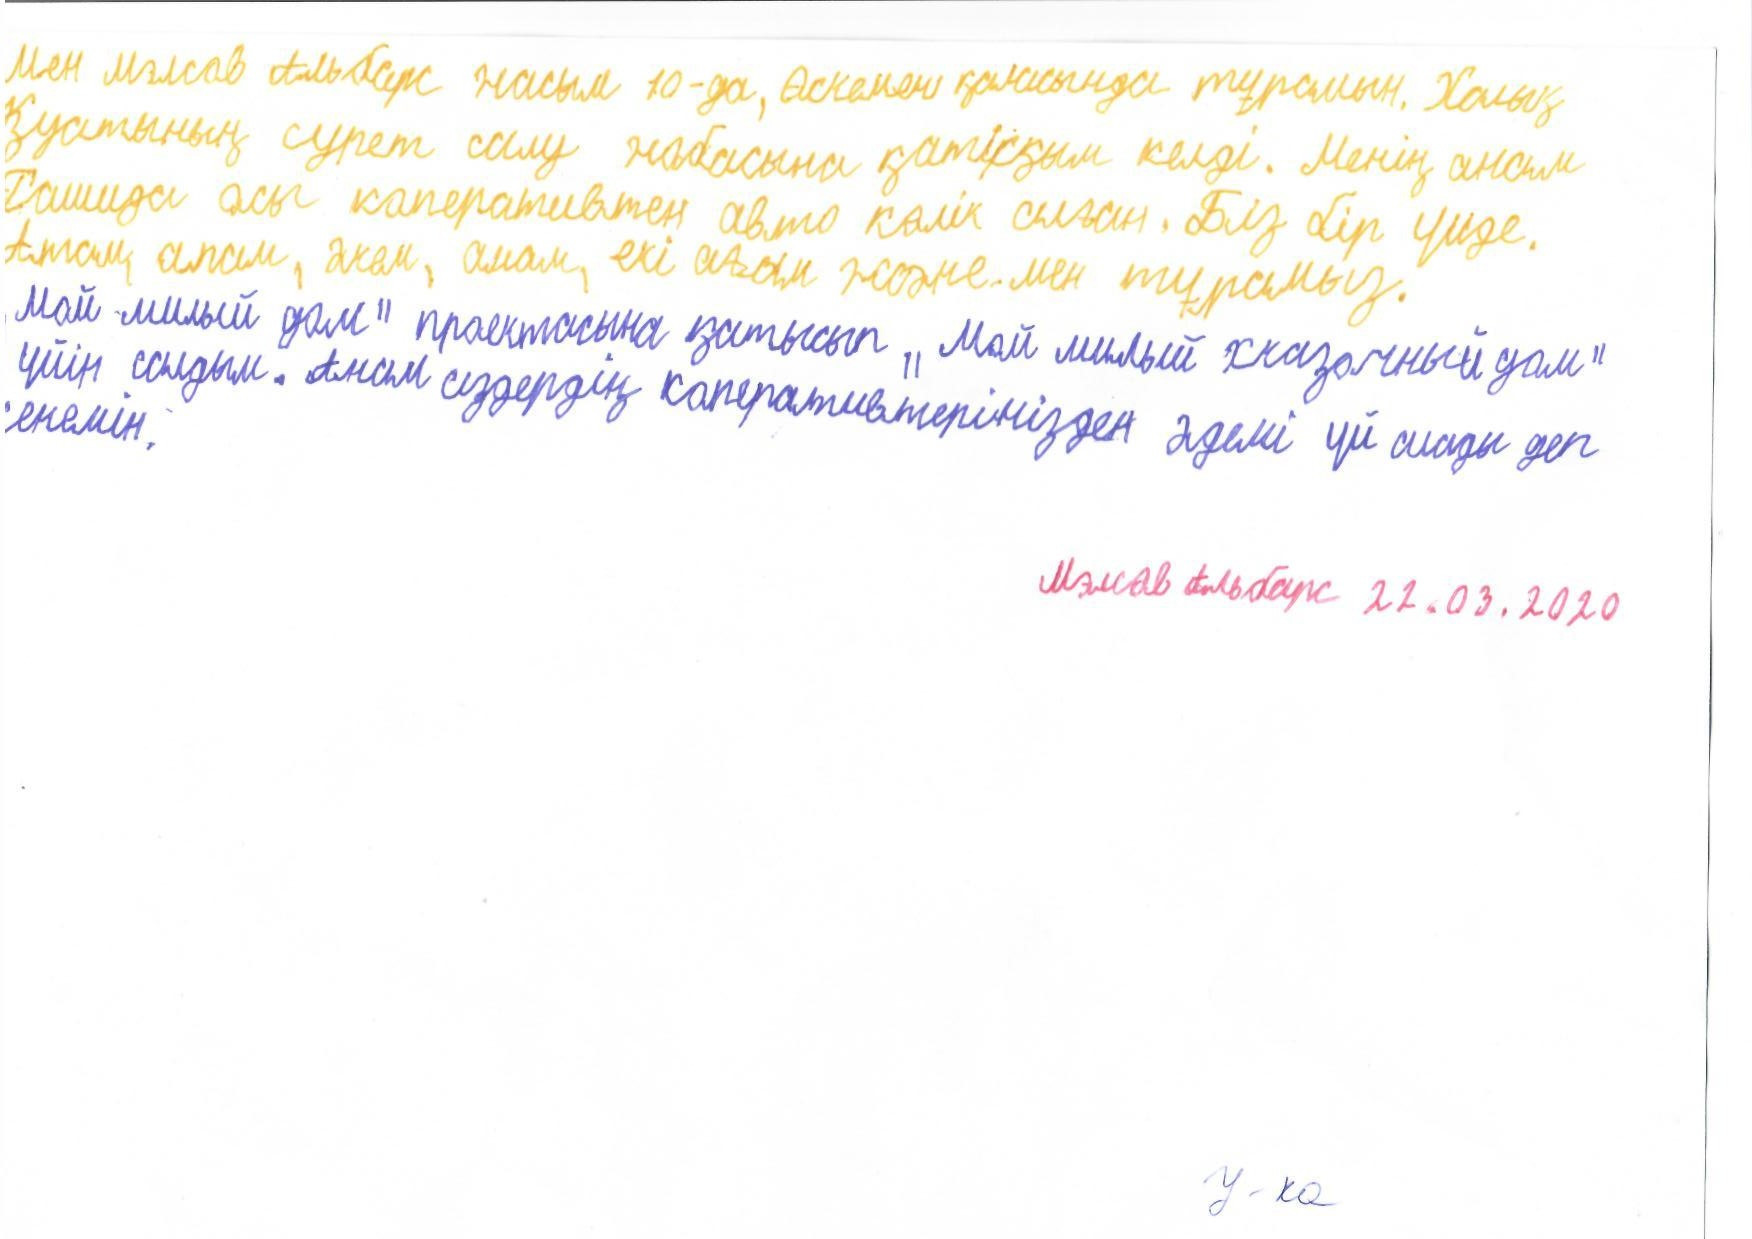 Мен Мэлсов Альбарс жасым 10-да, Өскемен қаласында тұрамын. Халық
Қуатының сурет салу жабасына қатісқым келді. Менің анам
Рашида осы каперативтен авто көлік алған. Біз бір үиде.
Атам, апам, әкем, анам, екі ағам және мен тұрамыз.
Мой милый дом" проектасына қатысып „Мой милый сказочный дом"
үйін салдым. Анам сіздердің каперативтеріңізден әдемі үй алады деп
сенемін.
Мэлсов Альбарс 22.03.2020
У-ка